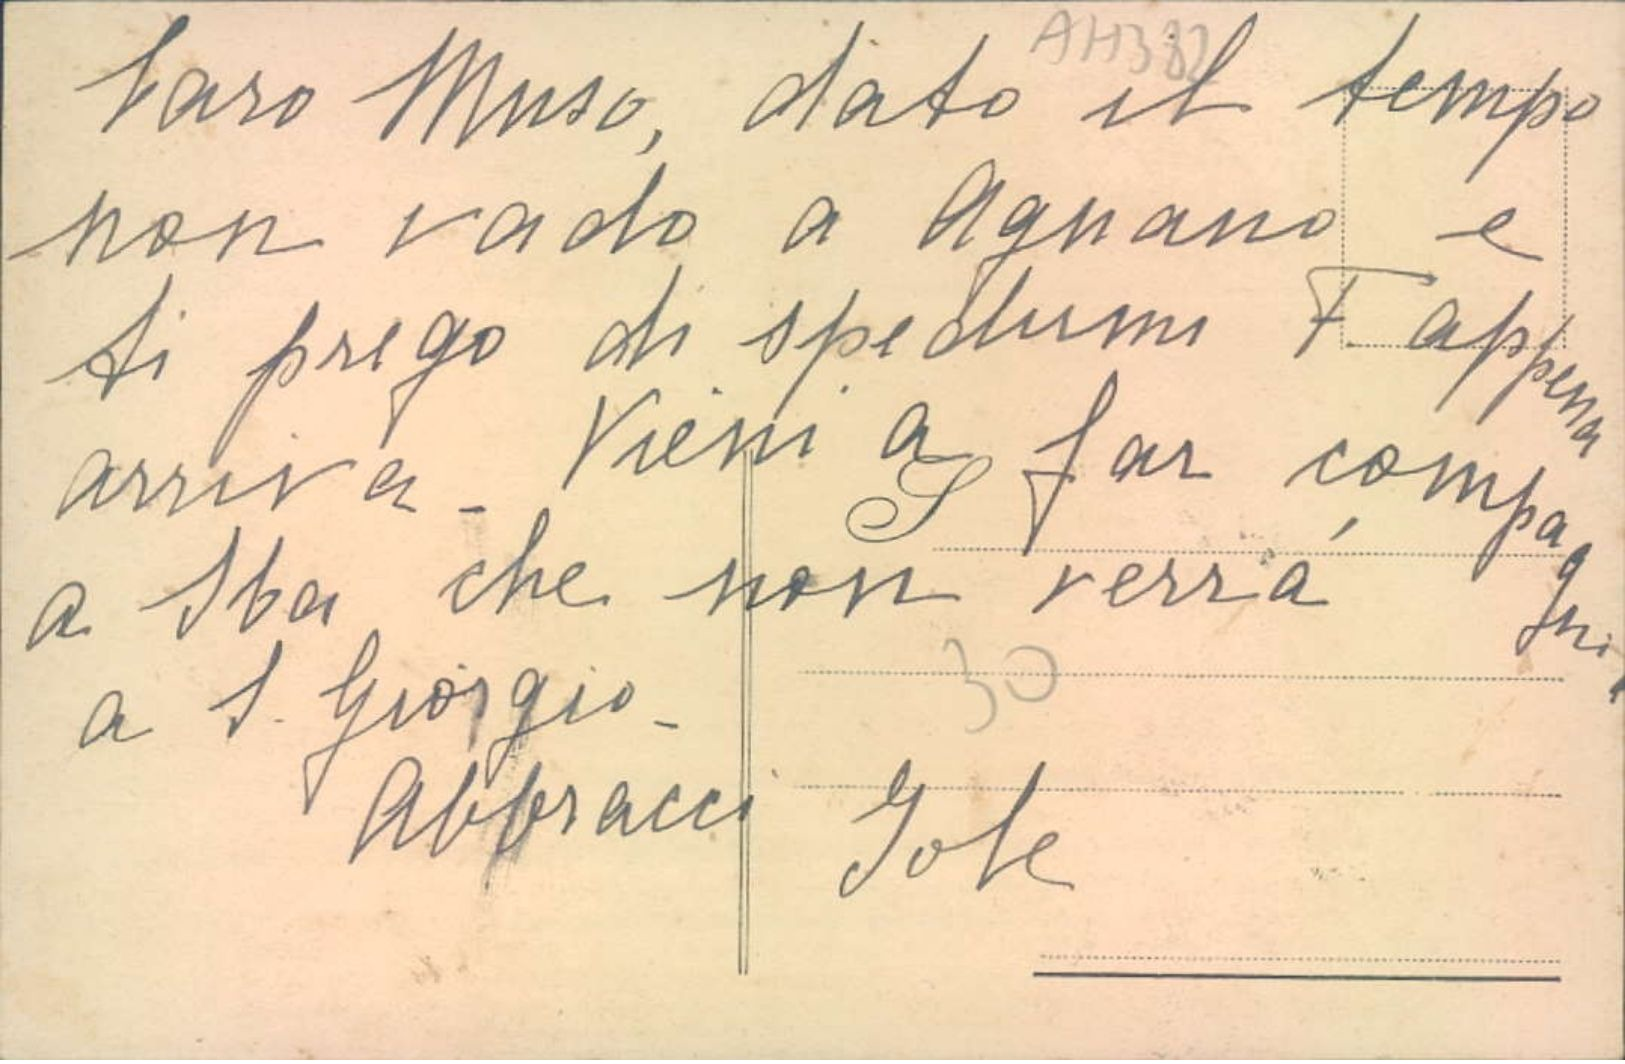 AH382
Caro Muso, dato il tempo
non vado a Agnano e
ti prego di spedirmi F appena
arriva - Vieni a far compagnia
a Iba che non verrà
a S. Giorgio -
Abbracci Iole
S
30